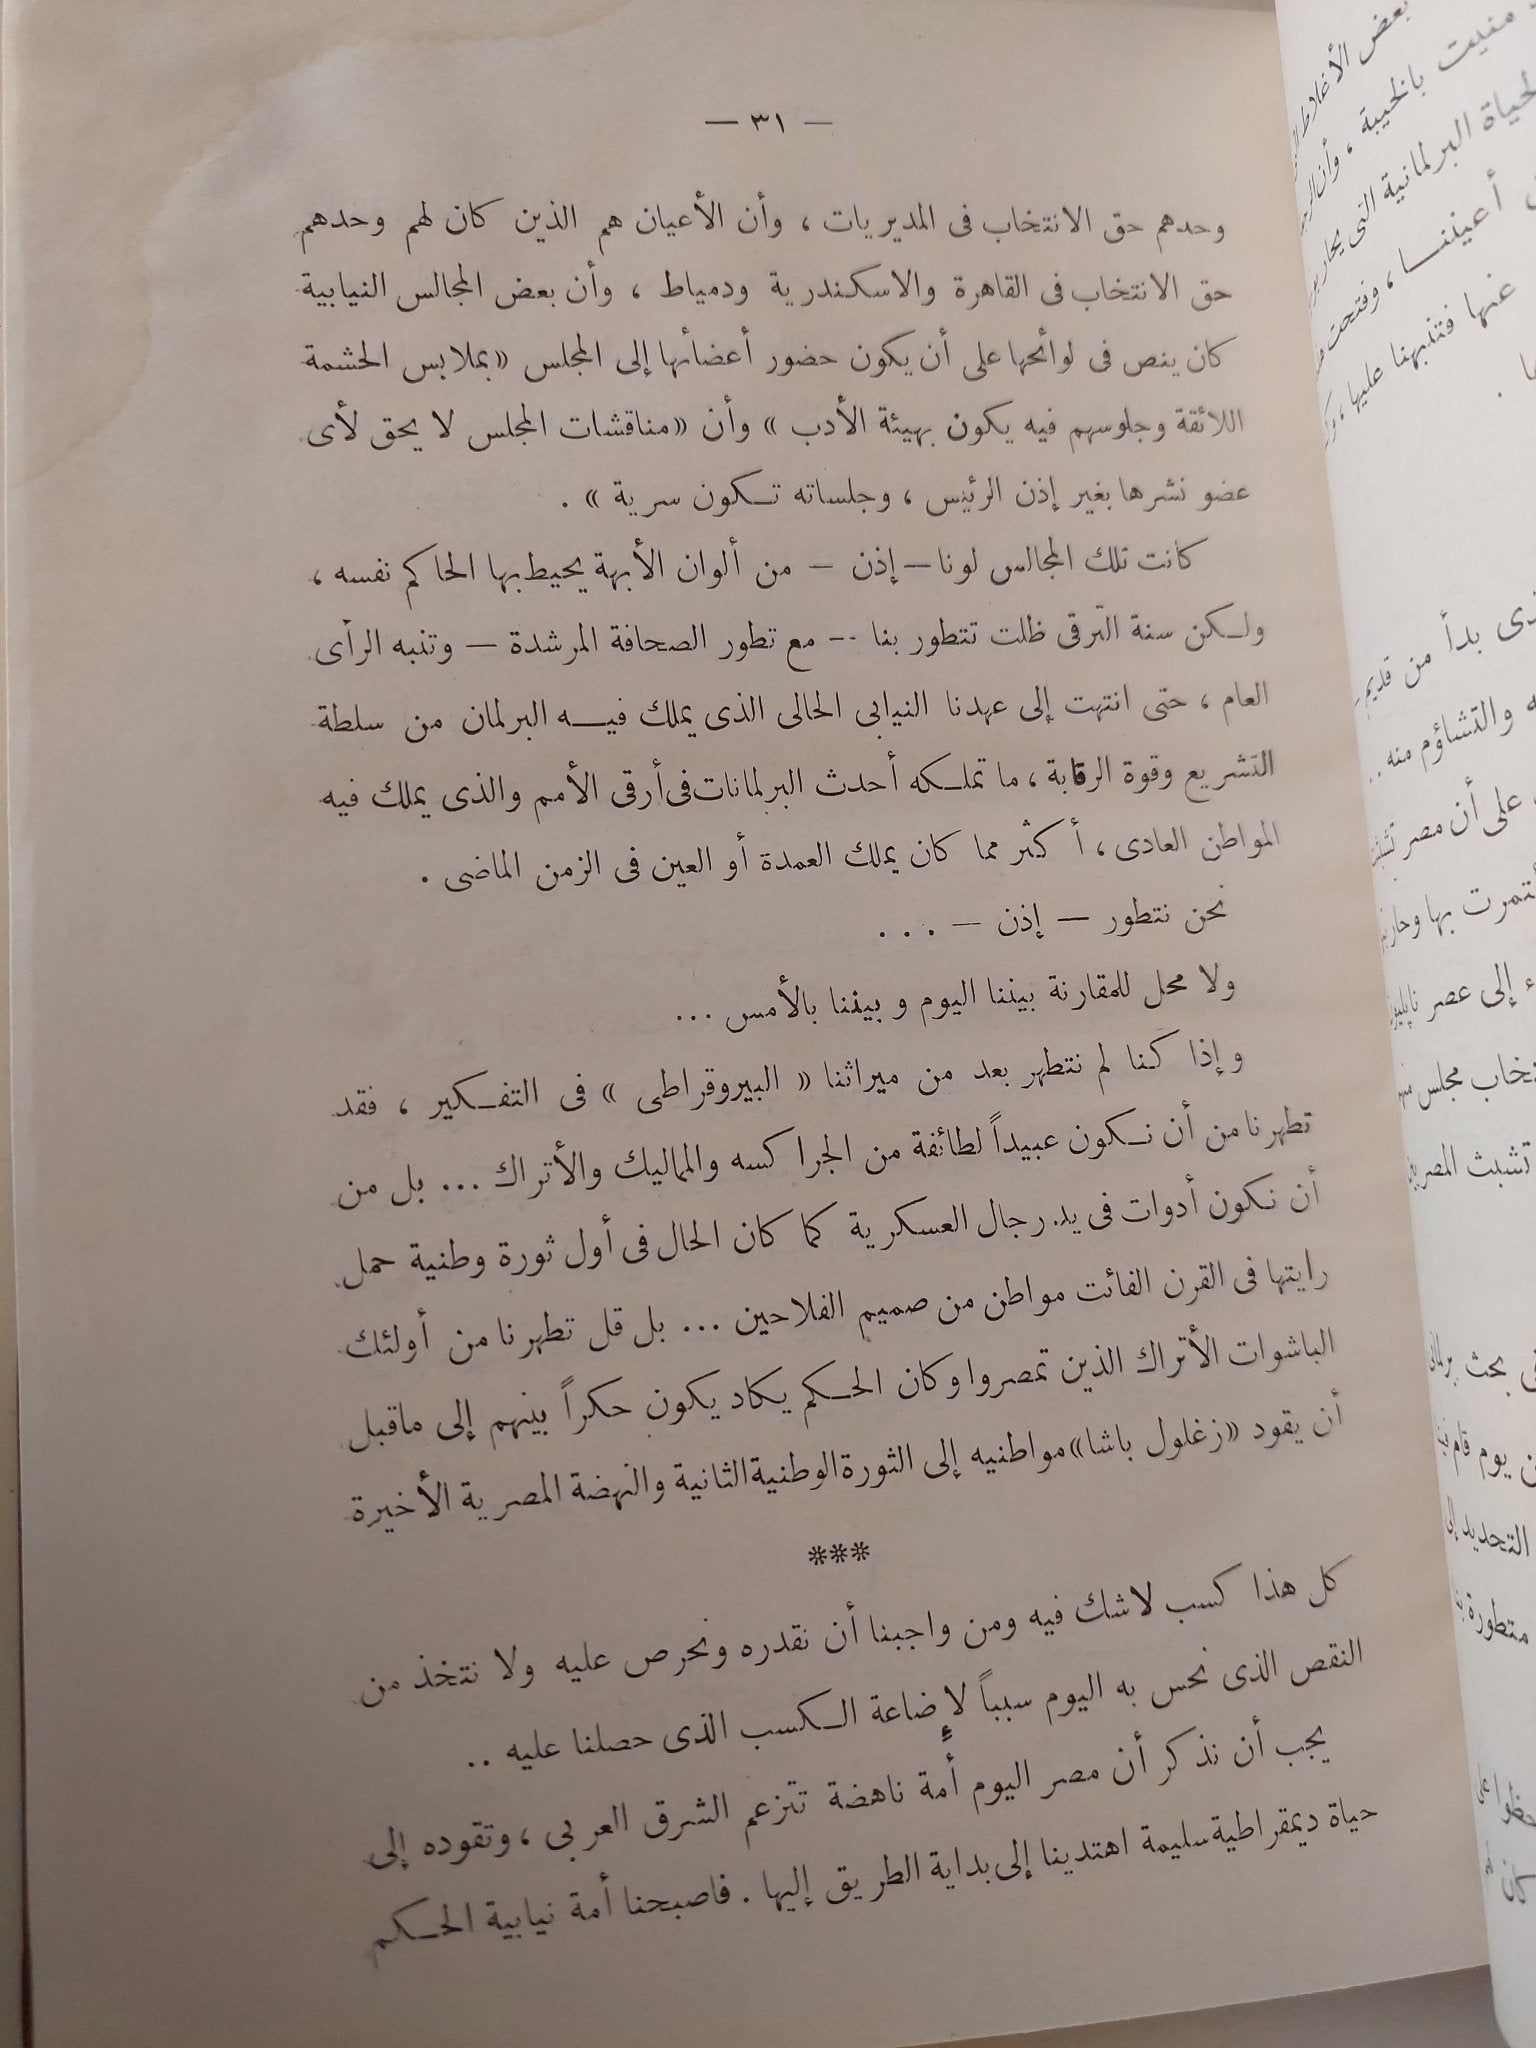 — ٣١ —
وحدهم حق الانتخاب فى المديريات ، وأن الأعيان هم الذين كان لهم وحدهم
حق الانتخاب فى القاهرة والاسكندرية ودمياط ، وأن بعض المجالس النيابية
كان ينص فى لوائحها على أن يكون حضور أعضائها إلى المجلس «بملابس الحشمة
اللائقة وجلوسهم فيه يكون بهيئة الأدب » وأن «مناقشات المجلس لا يحق لأى
عضو نشرها بغير إذن الرئيس ، وجلساته تكون سرية » .
كانت تلك المجالس لونا — إذن — من ألوان الأبهة يحيط بها الحاكم نفسه ،
ولكن سنة الترقى ظلت تتطور بنا -- مع تطور الصحافة المرشدة — وتنبه الرأى
العام ، حتى انتهت إلى عهدنا النيابى الحالى الذى يملك فيه البرلمان من سلطة
التشريع وقوة الرقابة ، ما تملكه أحدث البرلمانات فى أرقى الأمم والذى يملك فيه
المواطن العادى ، أكثر مما كان يملك العمدة أو العين فى الزمن الماضى .
نحن نتطور — إذن — . . .
ولا محل للمقارنة بيننا اليوم و بيننا بالأمس ...
و إذا كنا لم نتطهر بعد من ميراثنا « البيروقراطى » فى التفكير ، فقد
تطهرنا من أن نكون عبيداً لطائفة من الجراكسه والمماليك والأتراك ... بل من
أن نكون أدوات فى يد رجال العسكرية كما كان الحال فى أول ثورة وطنية حمل
رايتها فى القرن الفائت مواطن من صميم الفلاحين ... بل قل تطهرنا من أولئك
الباشوات الأتراك الذين تمصروا وكان الحكم يكاد يكون حكراً بينهم إلى ماقبل
أن يقود «زغلول باشا» مواطنيه إلى الثورة الوطنية الثانية والنهضة المصرية الأخيرة
***
كل هذا كسب لاشك فيه ومن واجبنا أن نقدره ونحرص عليه ولا نتخذ من
النقص الذى نحس به اليوم سبباً لإضاعة الكسب الذى حصلنا عليه ..
يجب أن نذكر أن مصر اليوم أمة ناهضة تتزعم الشرق العربى ، وتقوده إلى
حياة ديمقراطية سليمة اهتدينا إلى بداية الطريق إليها . فاصبحنا أمة نيابية الحكم
بعض الأغلاط
منيت بالخيبة ، وأن
الحياة البرلمانية التى
أعيننا ، وفتحت
عنها فتنبهنا عليها ،
بدأ من قديم
والتشاؤم منه ..
على أن مصر
بها
إلى عصر
مجلس
تشبث
بحث
يوم قام
التحديد
متطورة
كان